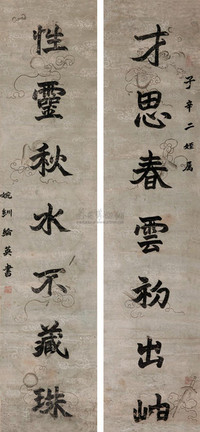 子辛二姪属
才思春雲初出岫
性靈秋水不藏珠
婉紃綸英書